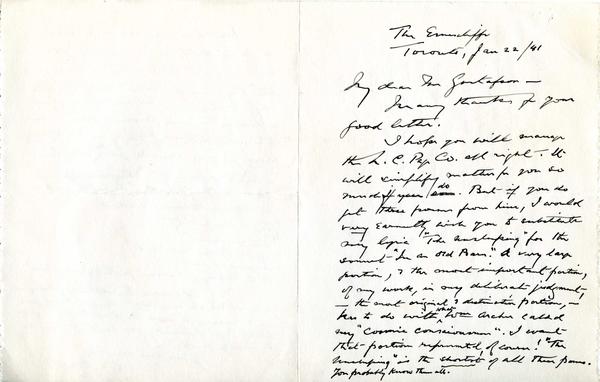 The Ernescliffe
Toronto, Jan 22/41
My dear Mr Gustafson —
Many thanks for your
good letter.
I hope you will manage
the L. C. Co. all right. It
will simplify matters for you so
much if you do. But if you do
get these poems from him, I would
very earnestly wish you to substitute
my lyric "The Unsleeping" for the
sonnet "In an Old Barn." A very large
portion, & the most important portion,
of my work, in my deliberate judgment,
— the most original & distinctive portion, —
has to do with what Wm Archer called
my "Cosmic Consciousness". I want
that portion represented, of course! "The
Unsleeping" is the shortest of all these poems.
You probably know them all.